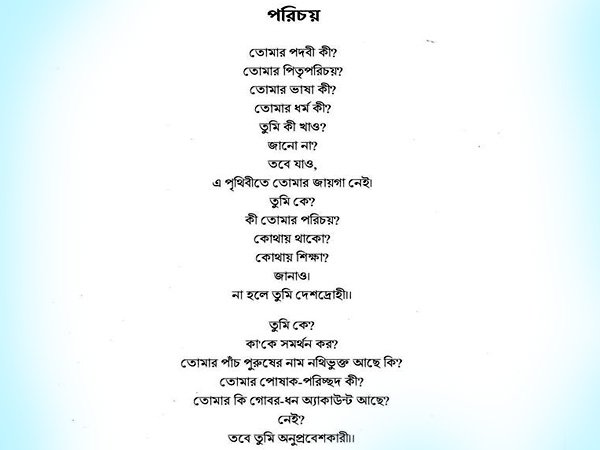 পরিচয়
তোমার পদবী কী?
তোমার পিতৃপরিচয়?
তোমার ভাষা কী?
তোমার ধর্ম কী?
তুমি কী খাও?
জানো না?
তবে যাও,
এ পৃথিবীতে তোমার জায়গা নেই।
তুমি কে?
কী তোমার পরিচয়?
কোথায় থাকো?
কোথায় শিক্ষা?
জানাও।
না হলে তুমি দেশদ্রোহী।।
তুমি কে?
কা'কে সমর্থন কর?
তোমার পাঁচ পুরুষের নাম নথিভুক্ত আছে কি?
তোমার পোষাক-পরিচ্ছদ কী?
তোমার কি গোবর-ধন অ্যাকাউন্ট আছে?
নেই?
তবে তুমি অনুপ্রবেশকারী।।